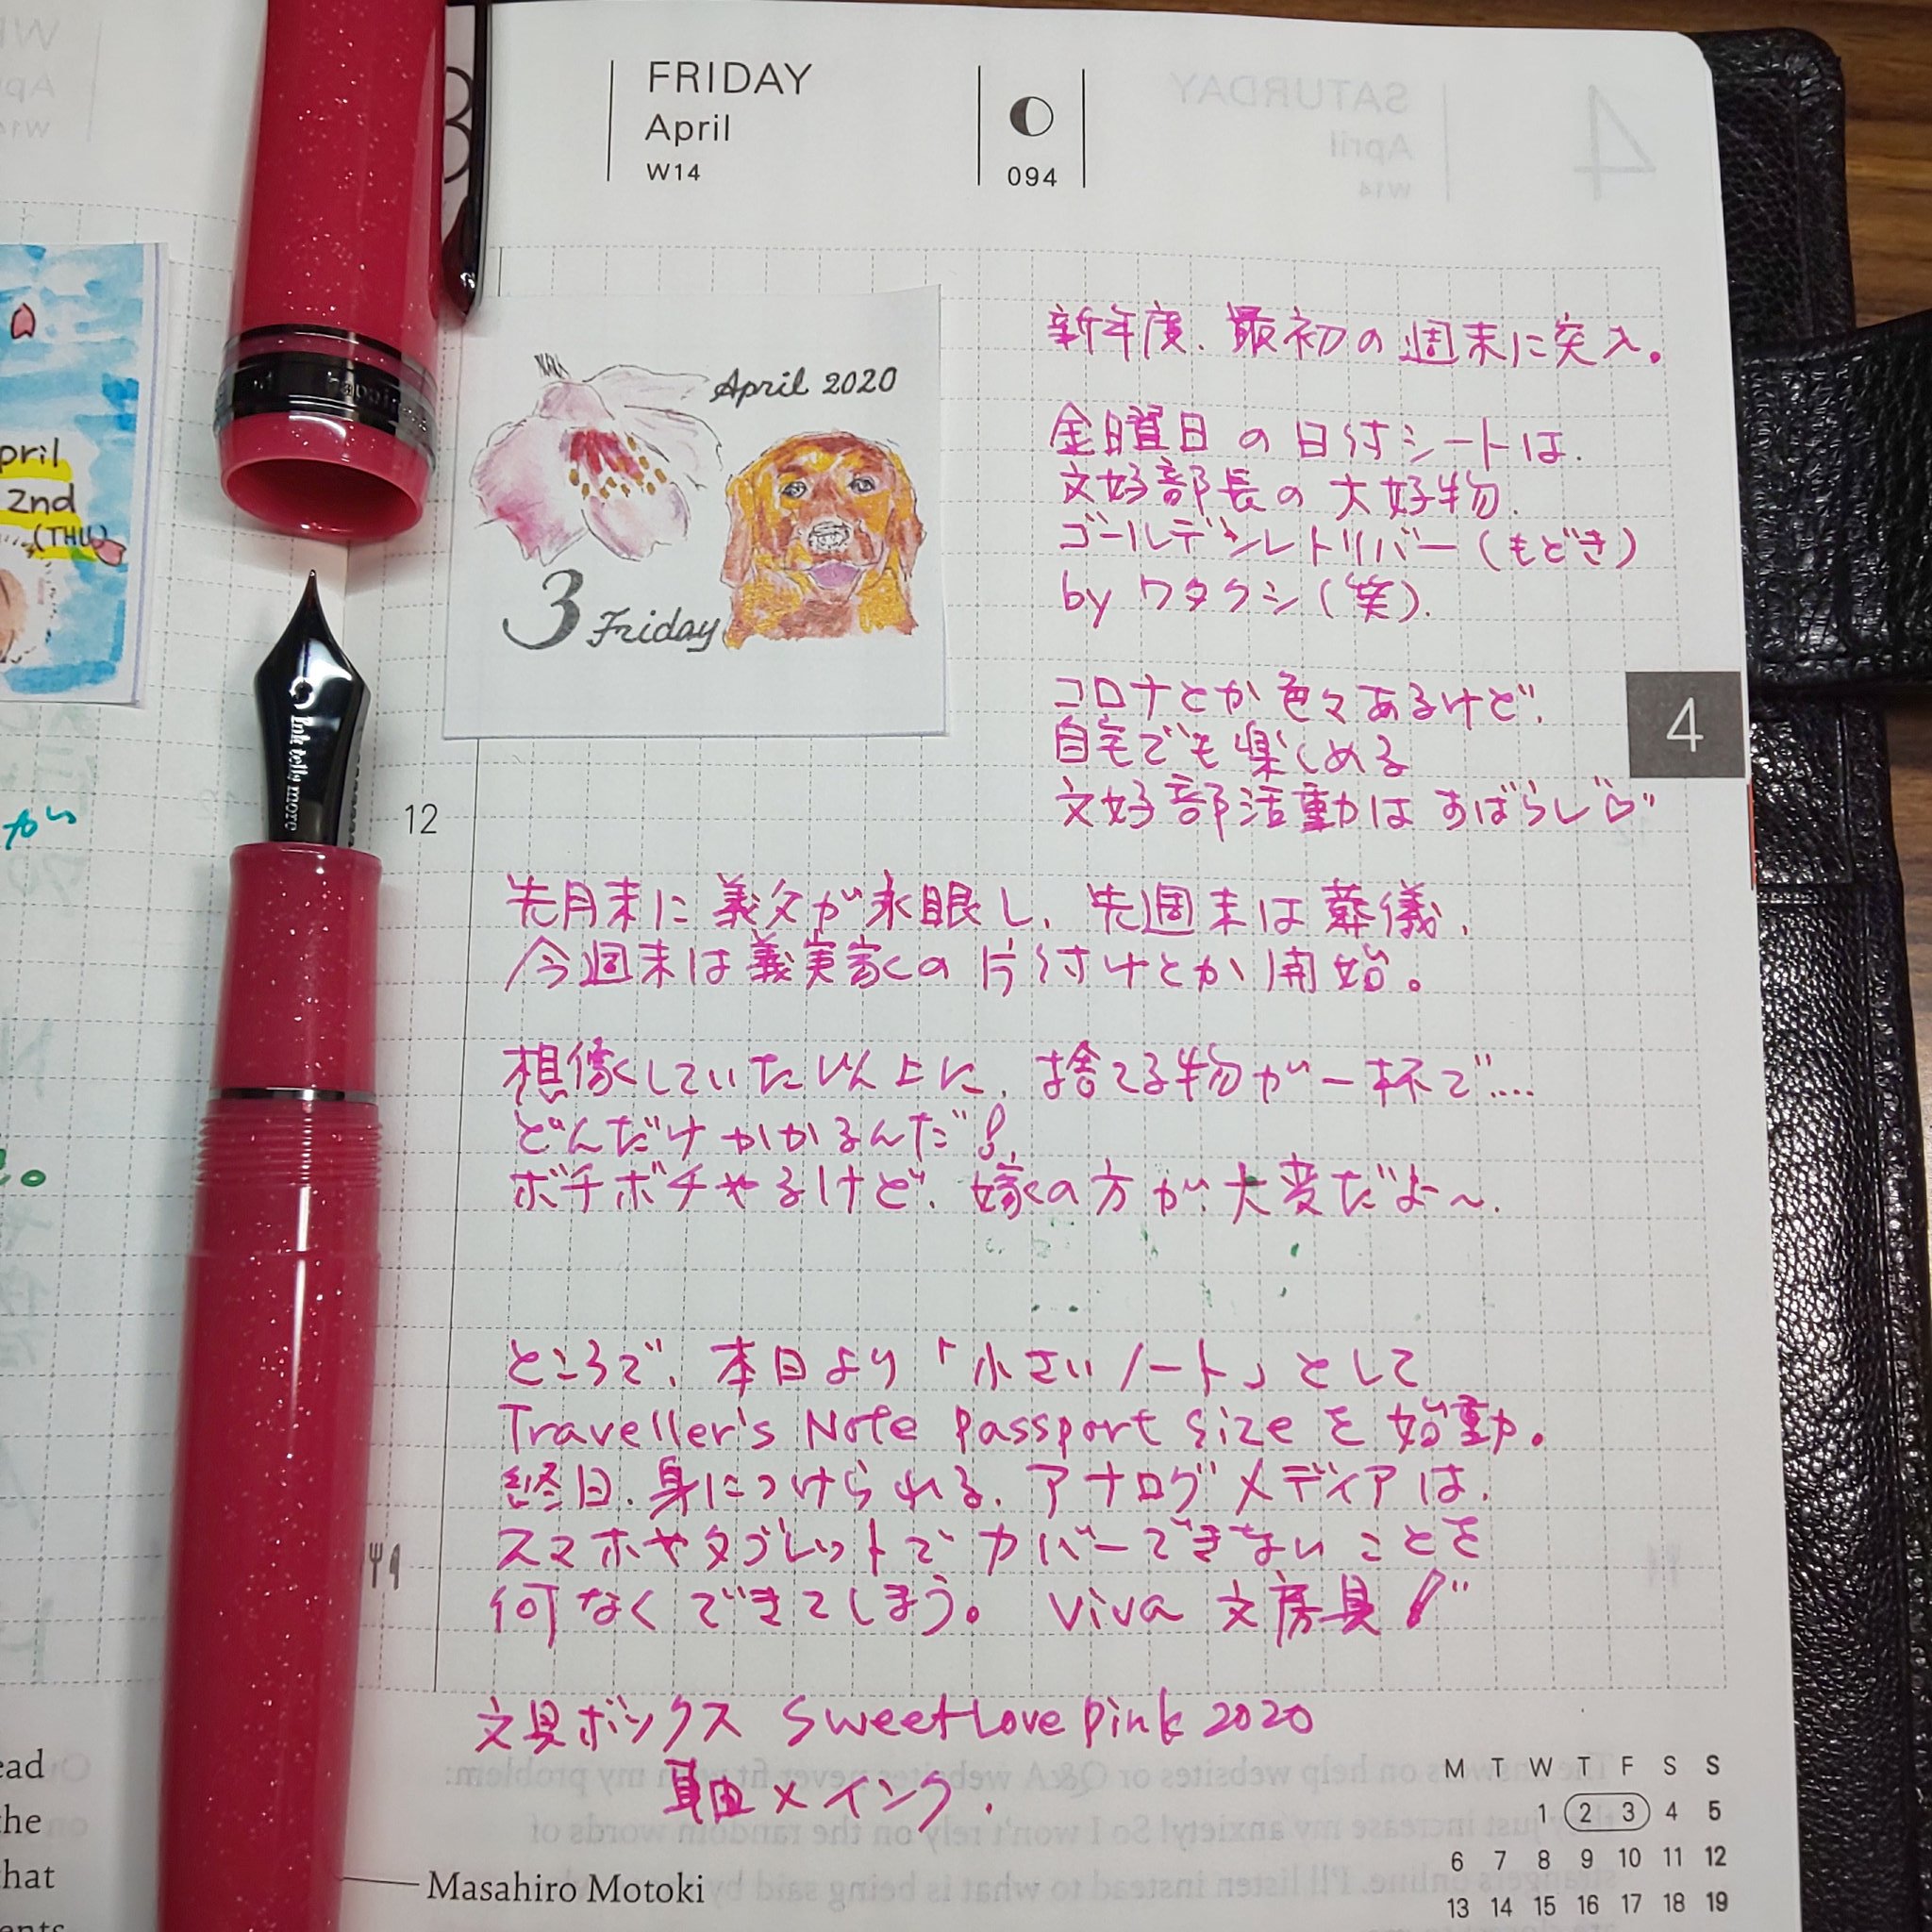 FRIDAY
April
W14
094
pril
2nd
(THU)
April 2020
3 Friday
Ink tells more
新年度、最初の週末に突入。
金曜日の日付シートは、
文好部長の大好物、
ゴールデンレトリバー(もどき)
by ワタクシ(笑).
コロナとか色々あるけど、
自宅でも楽しめる
文好部活動はすばらし♡
4
12
先月末に義父が永眠し、先週末は葬儀、
今週末は義実家の片付けとか開始。
想像していた以上に、捨てる物が一杯で....
どんだけかかるんだ!
ボチボチやるけど、嫁の方が大変だよ〜.
ところで、本日より「小さいノート」として
Traveller's Note Passport Size を始動。
終日、身につけられる、アナログメディアは、
スマホやタブレットでカバーできないことを
何なくできてしまう。 Viva 文房具!
文具ボックス Sweet Love Pink 2020
軸×インク.
Masahiro Motoki
M T W T F S S
1 2 3 4 5
6 7 8 9 10 11 12
13 14 15 16 17 18 19